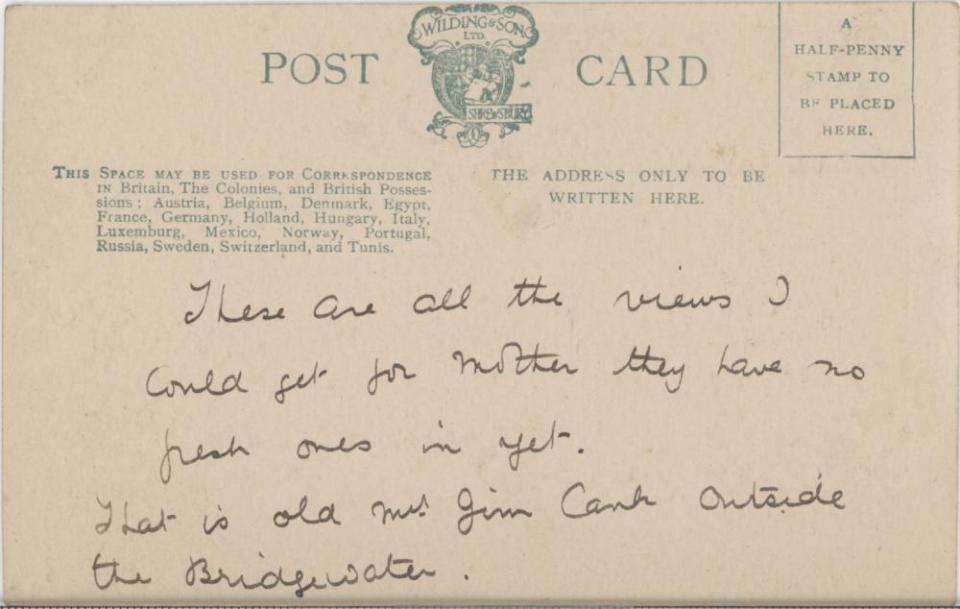 WILDING & SON
LTD.
SHREWSBURY
POST CARD
A
HALF-PENNY
STAMP TO
BE PLACED
HERE.
THIS SPACE MAY BE USED FOR CORRESPONDENCE
IN Britain, The Colonies, and British Posses-
sions; Austria, Belgium, Denmark, Egypt,
France, Germany, Holland, Hungary, Italy,
Luxemburg, Mexico, Norway, Portugal,
Russia, Sweden, Switzerland, and Tunis.
THE ADDRESS ONLY TO BE
WRITTEN HERE.
These are all the views I
Could get for Mother they have no
fresh ones in yet.
That is old Mrs Jim Cank Outside
the Bridgewater.